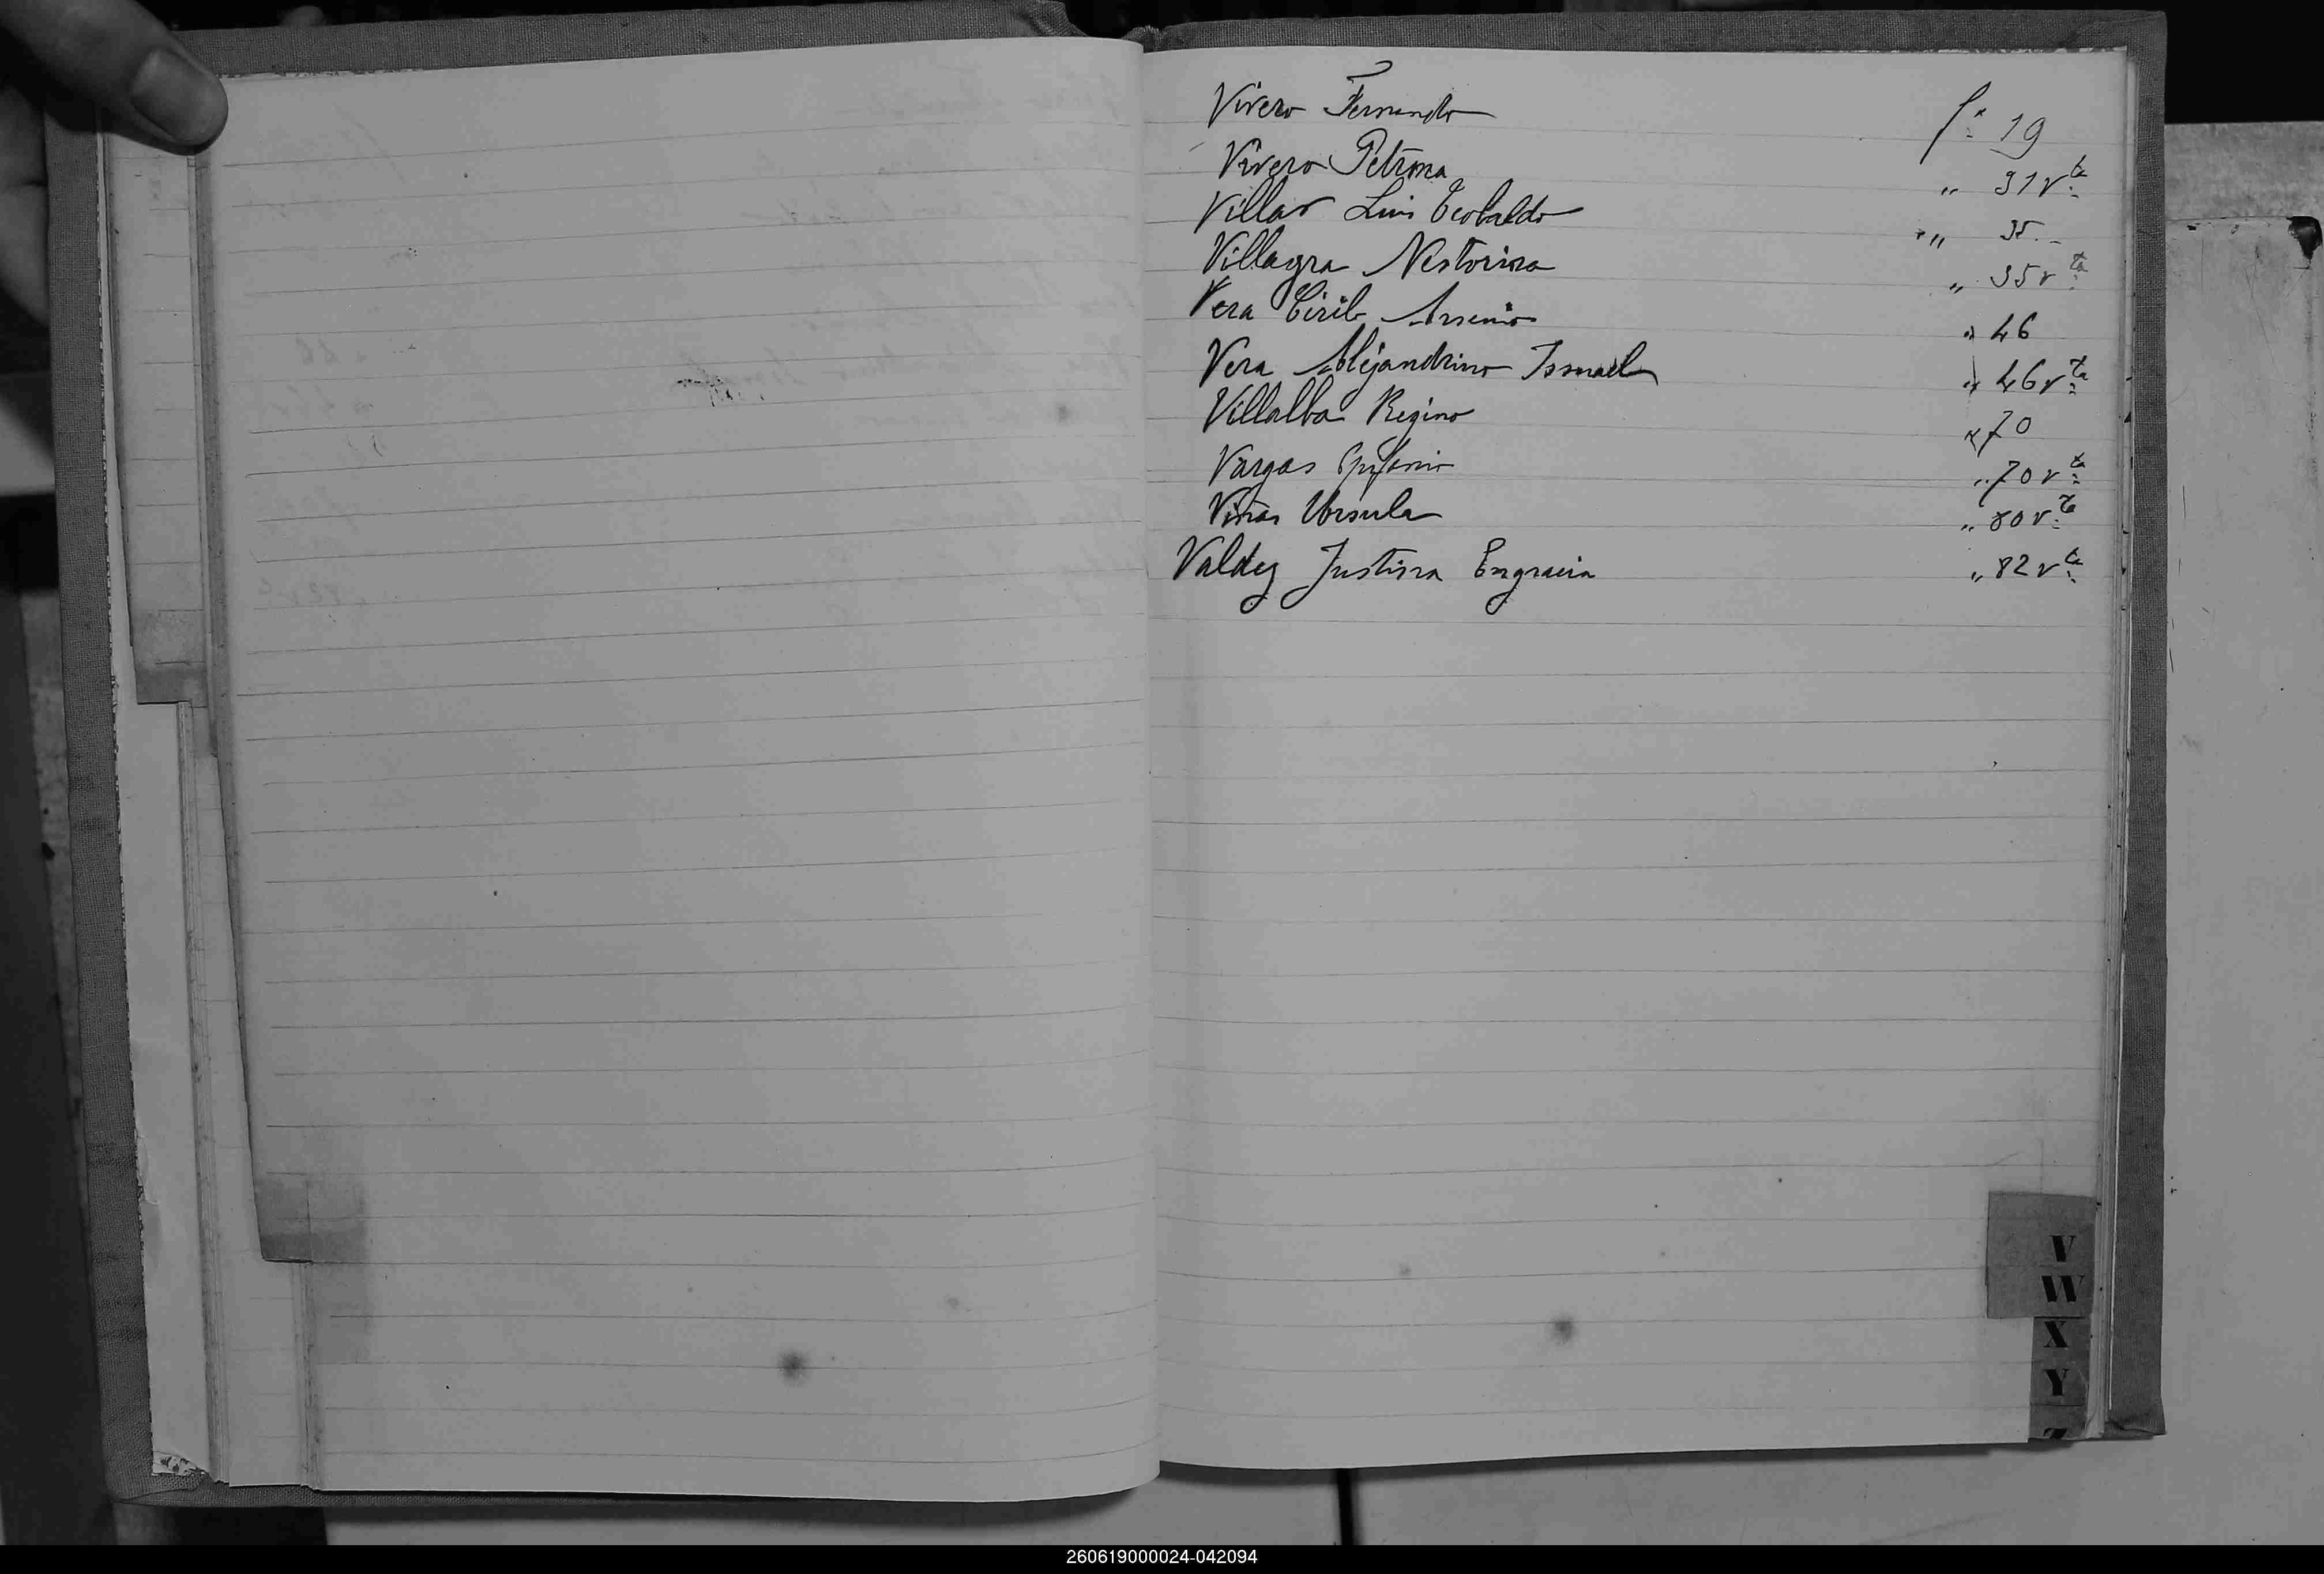 Vivero Fernando fº 19
Vivero Petrona " 31 vta
Villar Luis Teobaldo " 35.-
Villagra Nestorina " 35 vta
Vera Cirilo Arsenio " 46
Vera Alejandrino Ismael " 46 vta
Villalba Regino " 70
Vargas Epifanio " 70 vta
Viñas Ursula " 80 vta
Valdez Justina Engracia " 82 vta
V
W
X
Y
Z
260619000024-042094